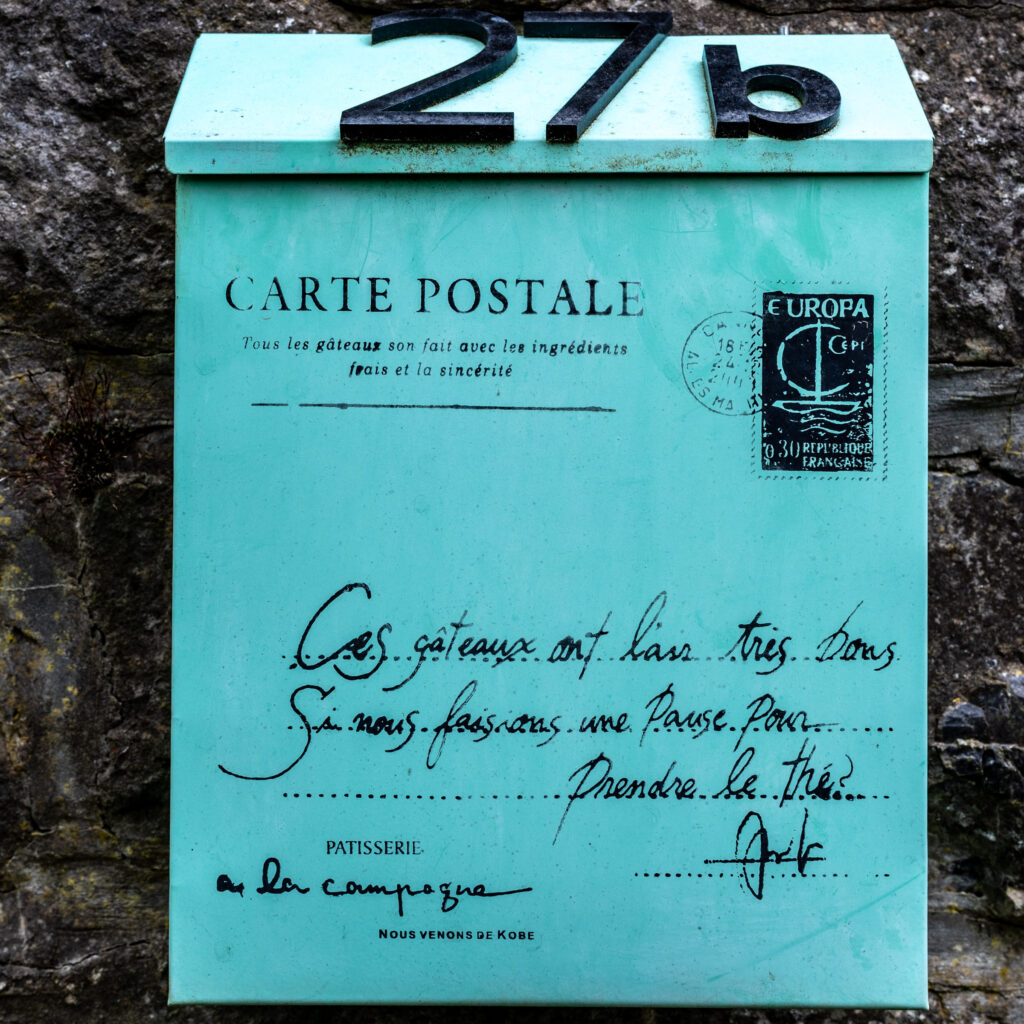 27b
CARTE POSTALE
Tous les gâteaux son fait avec les ingrédients
frais et la sincérité
EUROPA
CEPT
0,30 REPUBLIQUE
FRANÇAISE
Ces gâteaux ont l'air très bons
Si nous faisions une Pause Pour
Prendre le thé?
PATISSERIE
a la campagne
NOUS VENONS DE KOBE